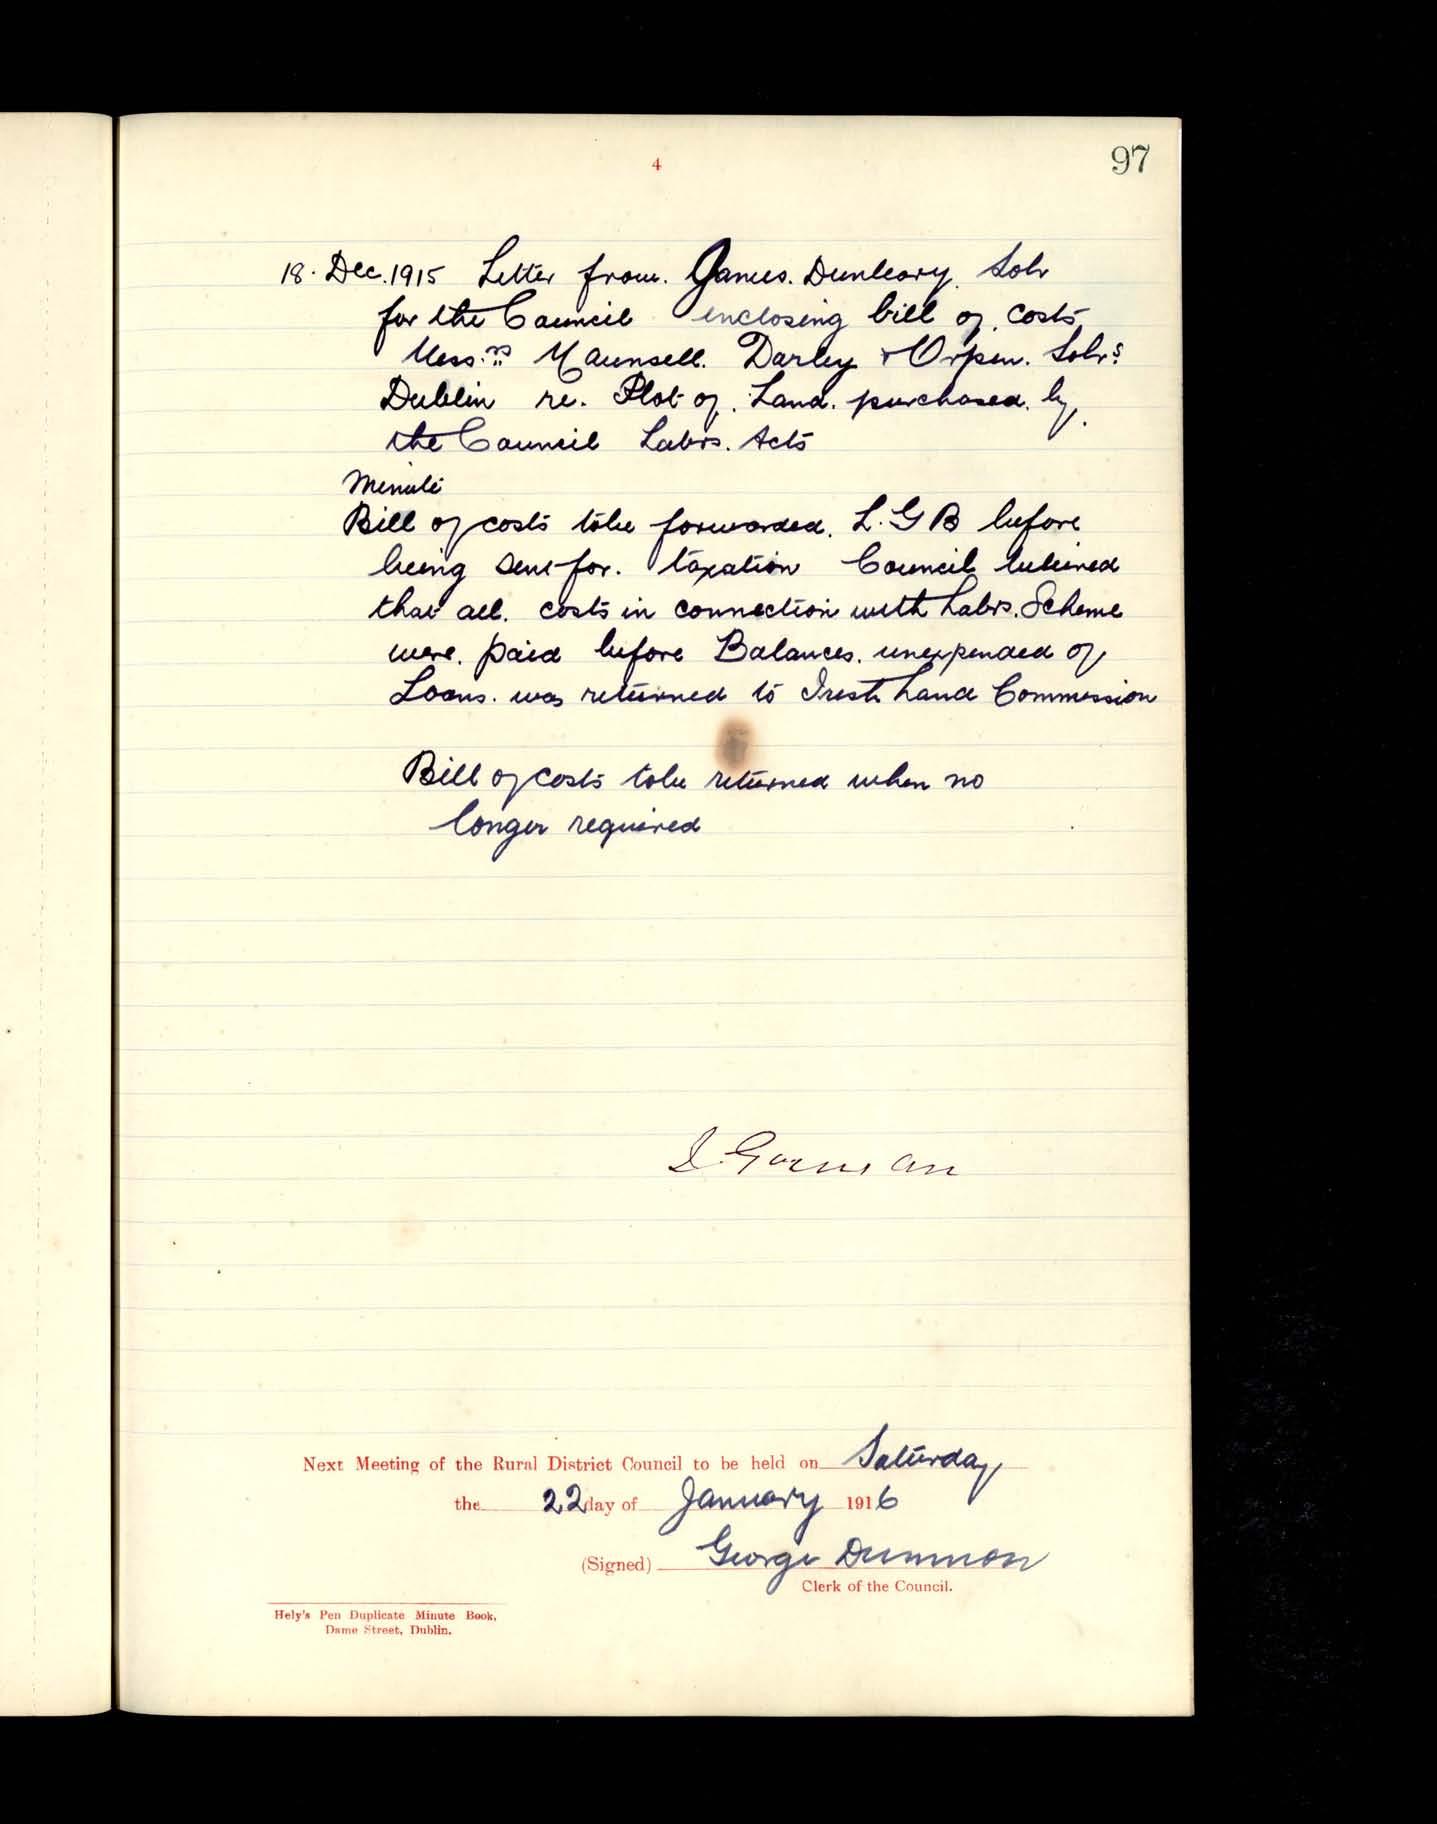 4
97
18. Dec. 1915 Letter from. James. Dunleavy. Solr
for the Council enclosing bill of. costs
Mess.rs Maunsell. Darley & Orpen. Solrs
Dublin re. Plot of. Land. purchased. by.
the Council Labrs. Acts
Minute
Bill of costs to be forwarded. L. G B before
being sent for. taxation Council believed
that all. costs in connection with Labrs. Scheme
were. paid before Balances. unexpended of
Loans. was returned to Irish Land Commission
Bill of costs to be returned when no
longer required
J. Gorman
Next Meeting of the Rural District Council to be held on Saturday
the 22 day of January 1916
(Signed) George
Clerk of the Council.
Hely's Pen Duplicate Minute Book,
Dame Street, Dublin.